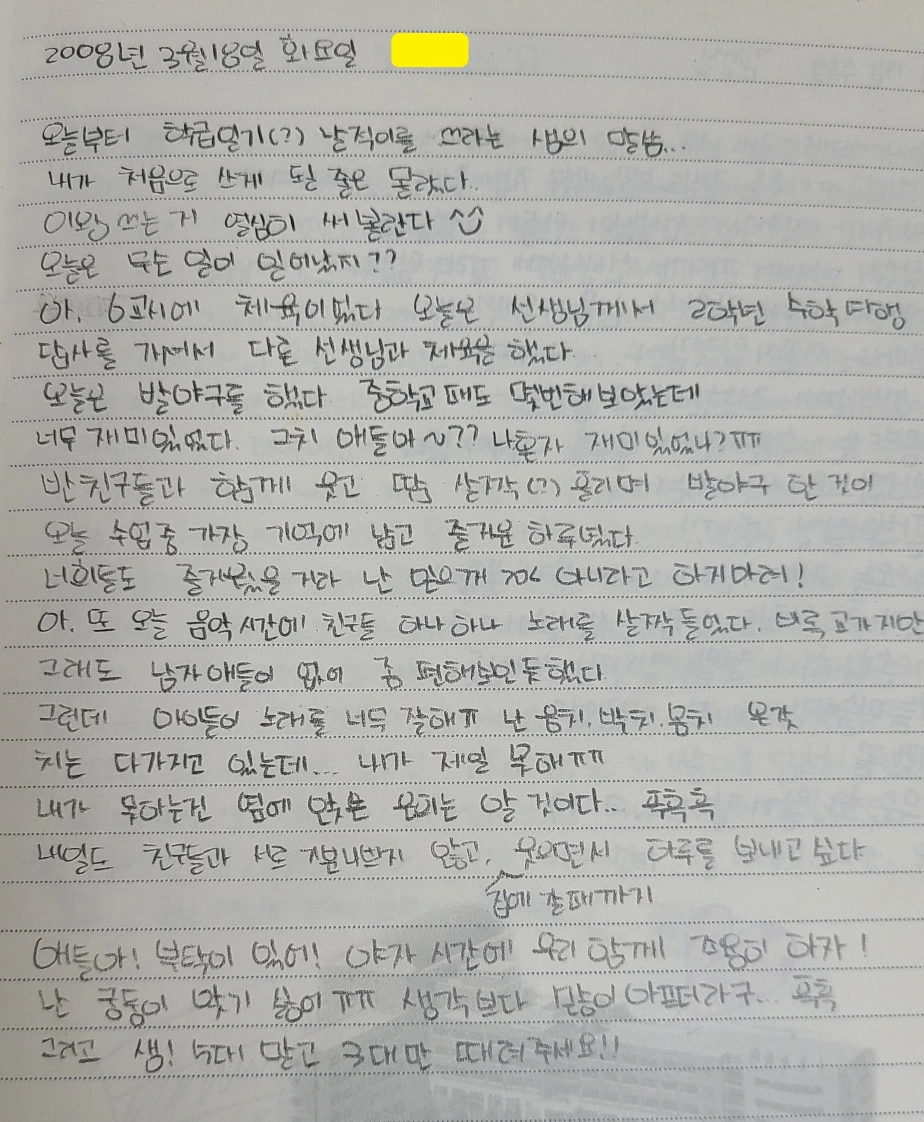 2008년 3월 18일 화요일
오늘부터 학급일기(?) 날적이를 쓰라는 샘의 말씀...
내가 처음으로 쓰게 될 줄은 몰랐다..
이왕 쓰는 거 열심히 써볼란다 ^^
오늘은 무슨 일이 일어났지??
아, 6교시에 체육이있다 오늘은 선생님께서 2학년 수학여행
답사를 가셔서 다른 선생님과 체육을 했다.
오늘은 발야구를 했다 중학교때도 몇번해보았는데
너무 재미있었다. 그치 애들아~?? 나혼자 재미있었나?ㅠㅠ
반친구들과 함께 웃고 땀 살짝(?) 흘리며 발야구 한 것이
오늘 수업중 가장 기억에 남고 즐거운 하루였다.
너희들도 즐거웠을 거라 난 믿으께 아니라고 하지마러!
아. 또 오늘 음악시간에 친구들 하나하나 노래를 살짝 들었다. 비록 교가지만
그래도 남자애들이 없어 좀 편해보인듯했다.
그런데 아이들이 노래를 너무 잘해ㅠ 난 음치, 박치, 몸치 온갖
치는 다가지고 있는데... 내가 제일 못해ㅠㅠ
내가 못하는건 옆에 앉은 은 알 것이다.. 흑흑
내일도 친구들과 서로 않고, 웃으면서 하루를 보내고 싶다
집에 갈때까지
애들아! 부탁이 있어! 야자 시간에 우리 함께 조용히 하자!
난 궁둥이 맞기 싫어 ㅠㅠ 생각보다 많이 아프더라구... 흑흑
그리고 샘! 5대 말고 3대만 때려주세요!!